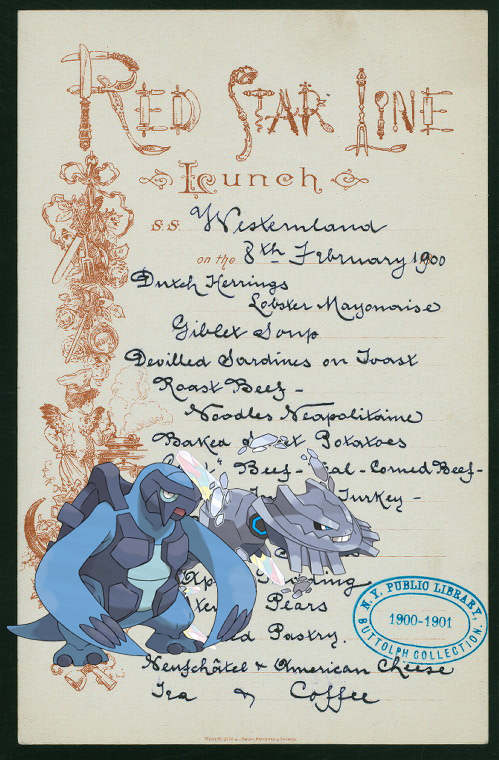 RED STAR LINE
Lunch
S.S. Westernland
on the 8th February 1900
Dutch Herrings
Lobster Mayonaise
Giblet Soup
Devilled Sardines on Toast
Roast Beef -
Noodles Neapolitaine
Baked Potatoes
Beef - - Corned Beef -
Turkey -
Pears
Pastry.
Neufchâtel & American Cheese
Tea & Coffee
N.Y. PUBLIC LIBRARY,
1900-1901
BUTTOLPH COLLECTION.